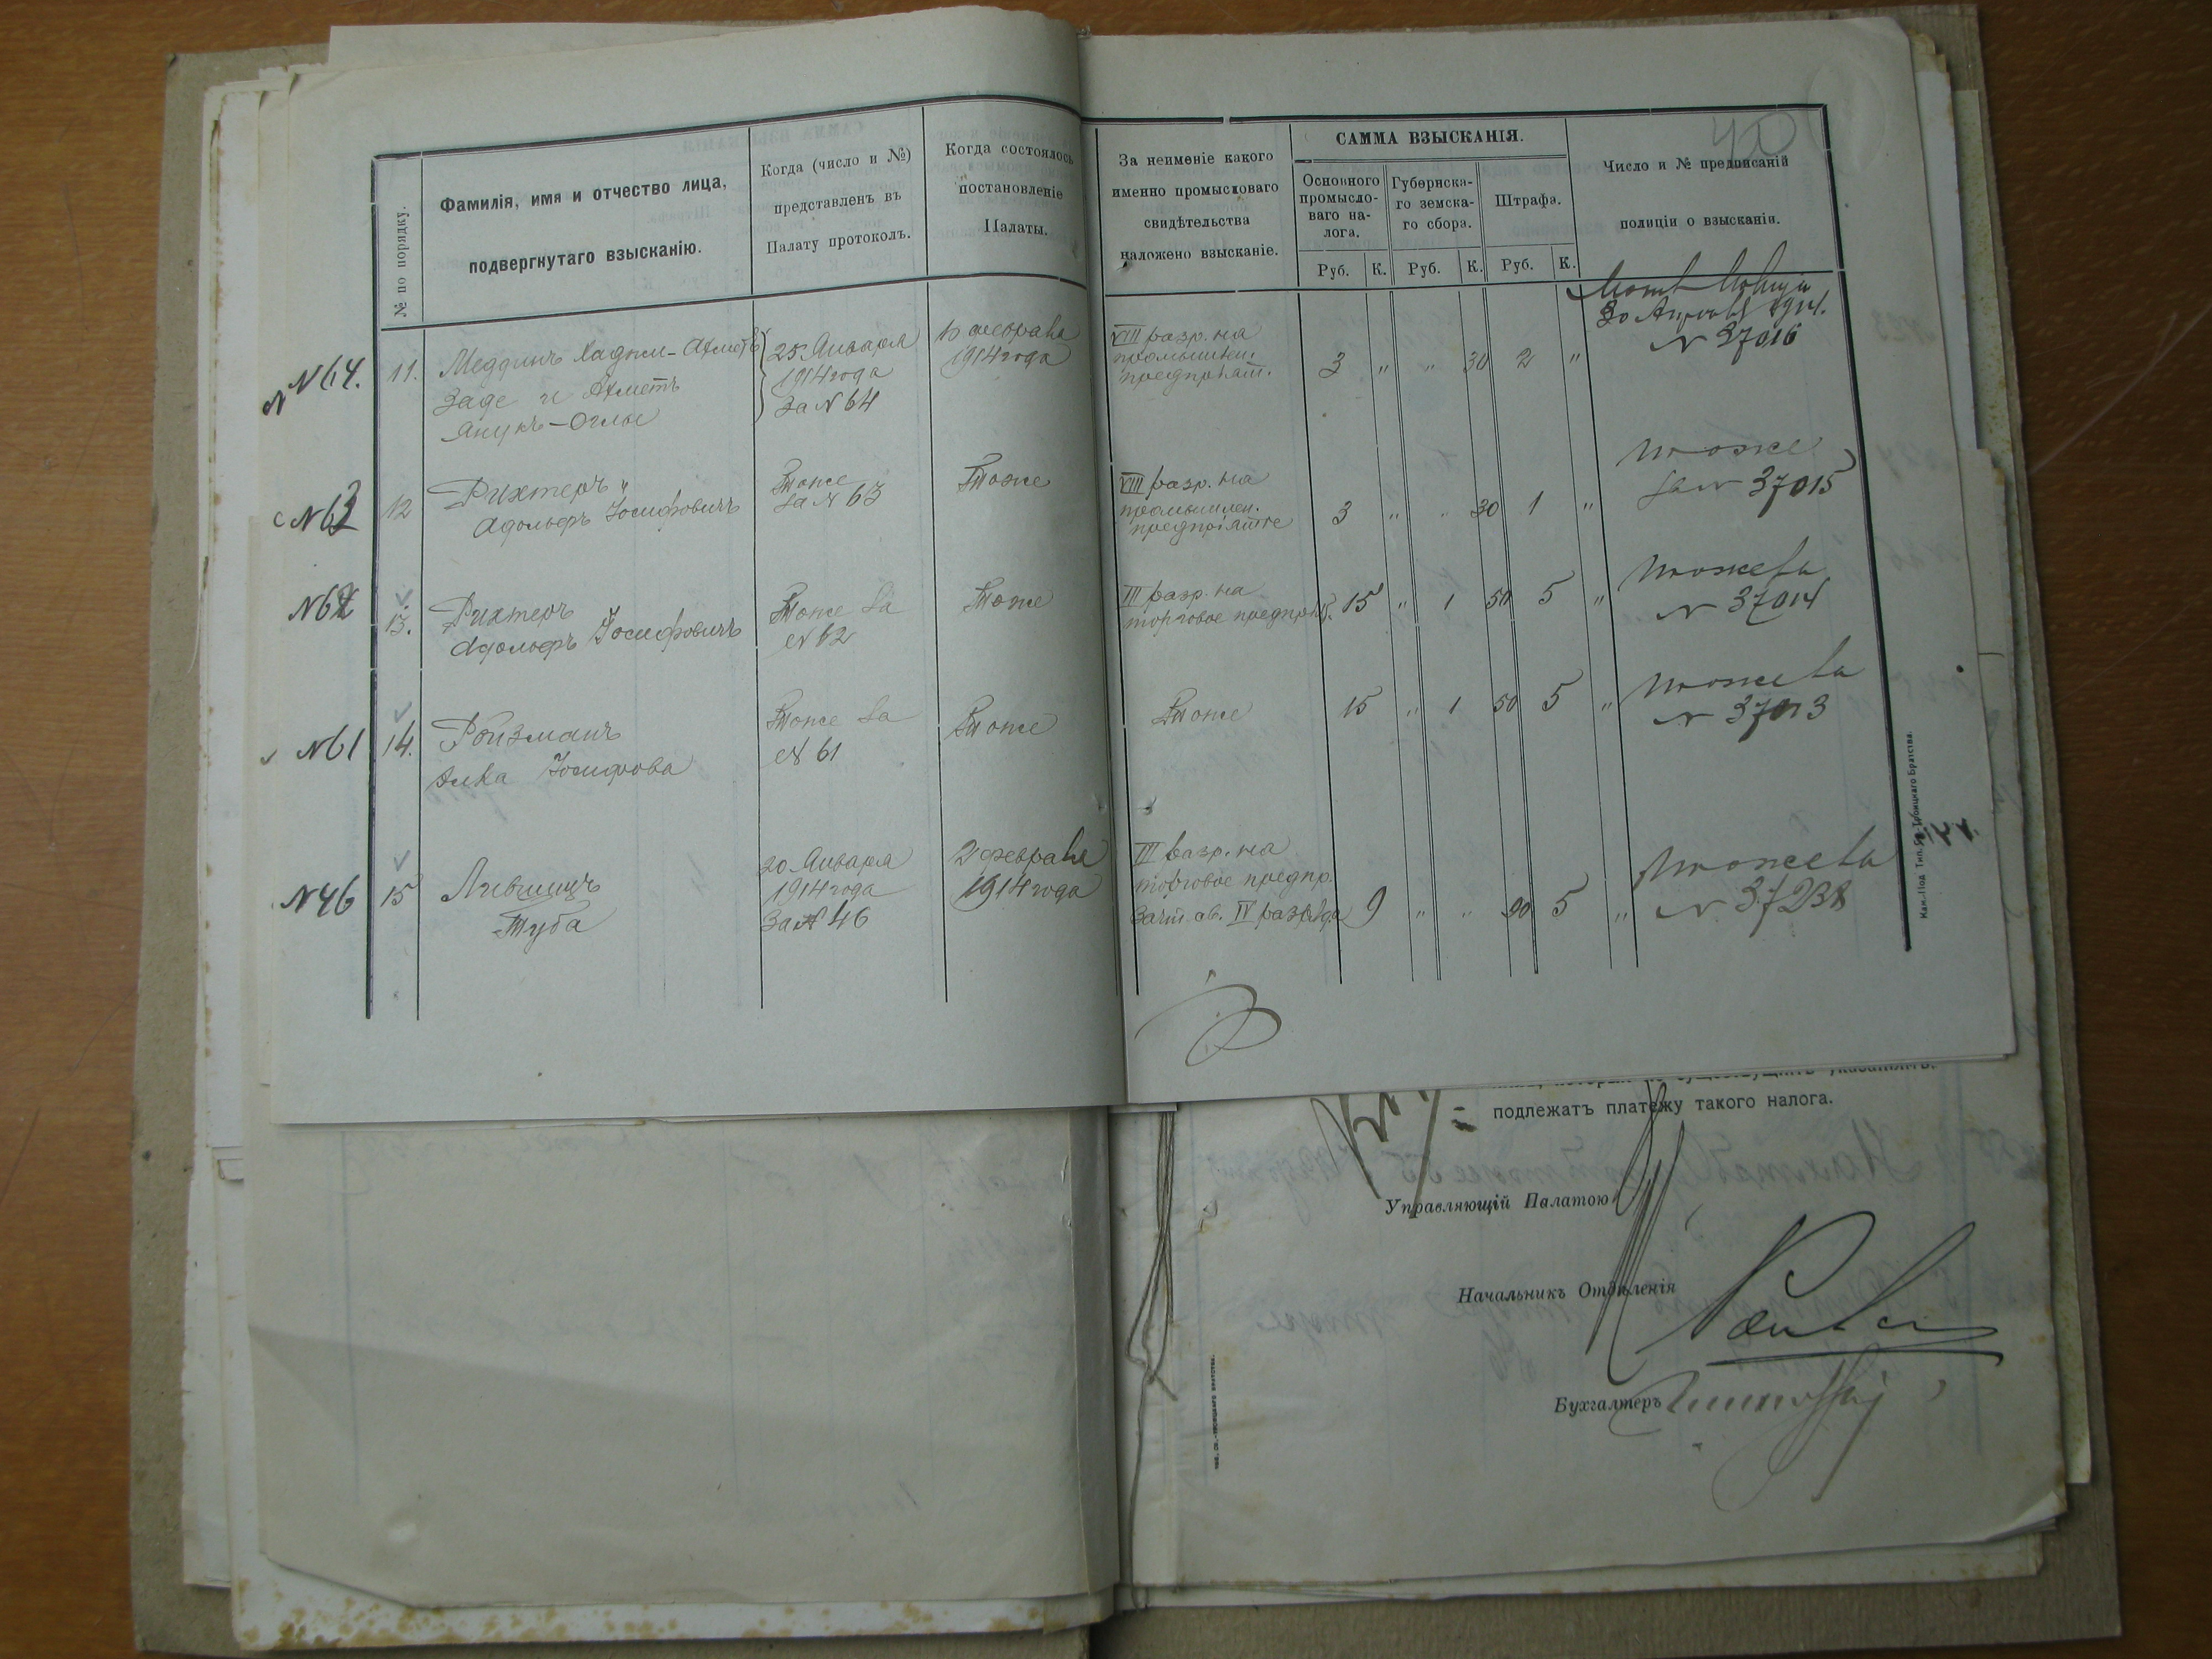 № по порядку.
Фамилія, имя и отчество лица,
подвергнутаго взысканію.
Когда (число и №)
представленъ въ
Палату протоколъ.
Когда состоялось
постановленіе
Палаты.
За неименіе какого
именно промысловаго
свидѣтельства
наложено взысканіе.
САММА ВЗЫСКАНІЯ.
Основного
промысло-
ваго на-
лога.
Губернска-
го земска-
го сбора.
Штрафа.
Руб. К. Руб. К. Руб. К.
Число и № предписаній
полиціи о взысканіи.
40
N64.
11.
Меддинъ Хаджи-Ахметъ
Заде и Ахметъ
Якукъ-Оглы
25 Января
1914 года
За N 64
10 февраля
1914 года
VIII разр. на
промышлен.
предпріят.
3 " " 30 2 "
N 37016
N63
12
Рихтеръ
Адольфъ Іосифовичъ
Тоже
за N 63
Тоже
VIII разр. на
промышлен.
предпріятіе
3 " " 30 1 "
тоже
за N 37015
N62
13.
Рихтеръ
Адольфъ Іосифовичъ
Тоже за
N 62
Тоже
III разр. на
торговое предпр.
15 " 1 50 5 "
тоже за
N 37014
N61
14.
Ройзманъ
Іосифова
Тоже за
N 61
Тоже
Тоже
15 " 1 50 5 "
тоже за
N 37013
N46
15
Лившицъ
Туба
20 Января
1914 года
За N 46
2 февраля
1914 года
III разр. на
торговое предпр.
Зачт. св. IV разряда
9 " " 90 5 "
тоже за
N 37238
Кам.-Под. Тип. Св.-Троицкаго Братства.
подлежатъ платежу такого налога.
Управляющій Палатою
Начальникъ Отдѣленія
Бухгалтеръ